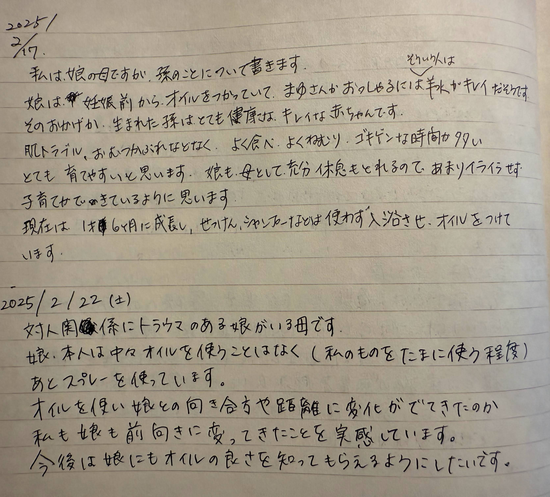 2025/
2/17.
私は、娘の母ですが、孫のことについて書きます。
そういう人は
娘は 妊娠前から、オイルをつかっていて、まゆさんがおっしゃるには羊水がキレイだそうです
そのおかげか、生まれた孫はとても健康な、キレイな赤ちゃんです。
肌トラブル、おむつかぶれなどなく、よく食べ、よくねむり、ゴキゲンな時間が多い
とても 育てやすいと思います。娘も、母として充分休息もとれるので、あまりイライラせず
子育てができているように思います。
現在は 1才6ヶ月に成長し、せっけん、シャンプーなどは使わず入浴させ、オイルをつけて
います。
2025/2/22 (土)
対人関係にトラウマのある娘がいる母です。
娘、本人は中々オイルを使うことはなく(私のものをたまに使う程度)
あとスプレーを使っています。
オイルを使い娘との向き合方や距離に変化がでてきたのか
私も娘も前向きに変ってきたことを実感しています。
今後は娘にもオイルの良さを知ってもらえるようにしたいです。